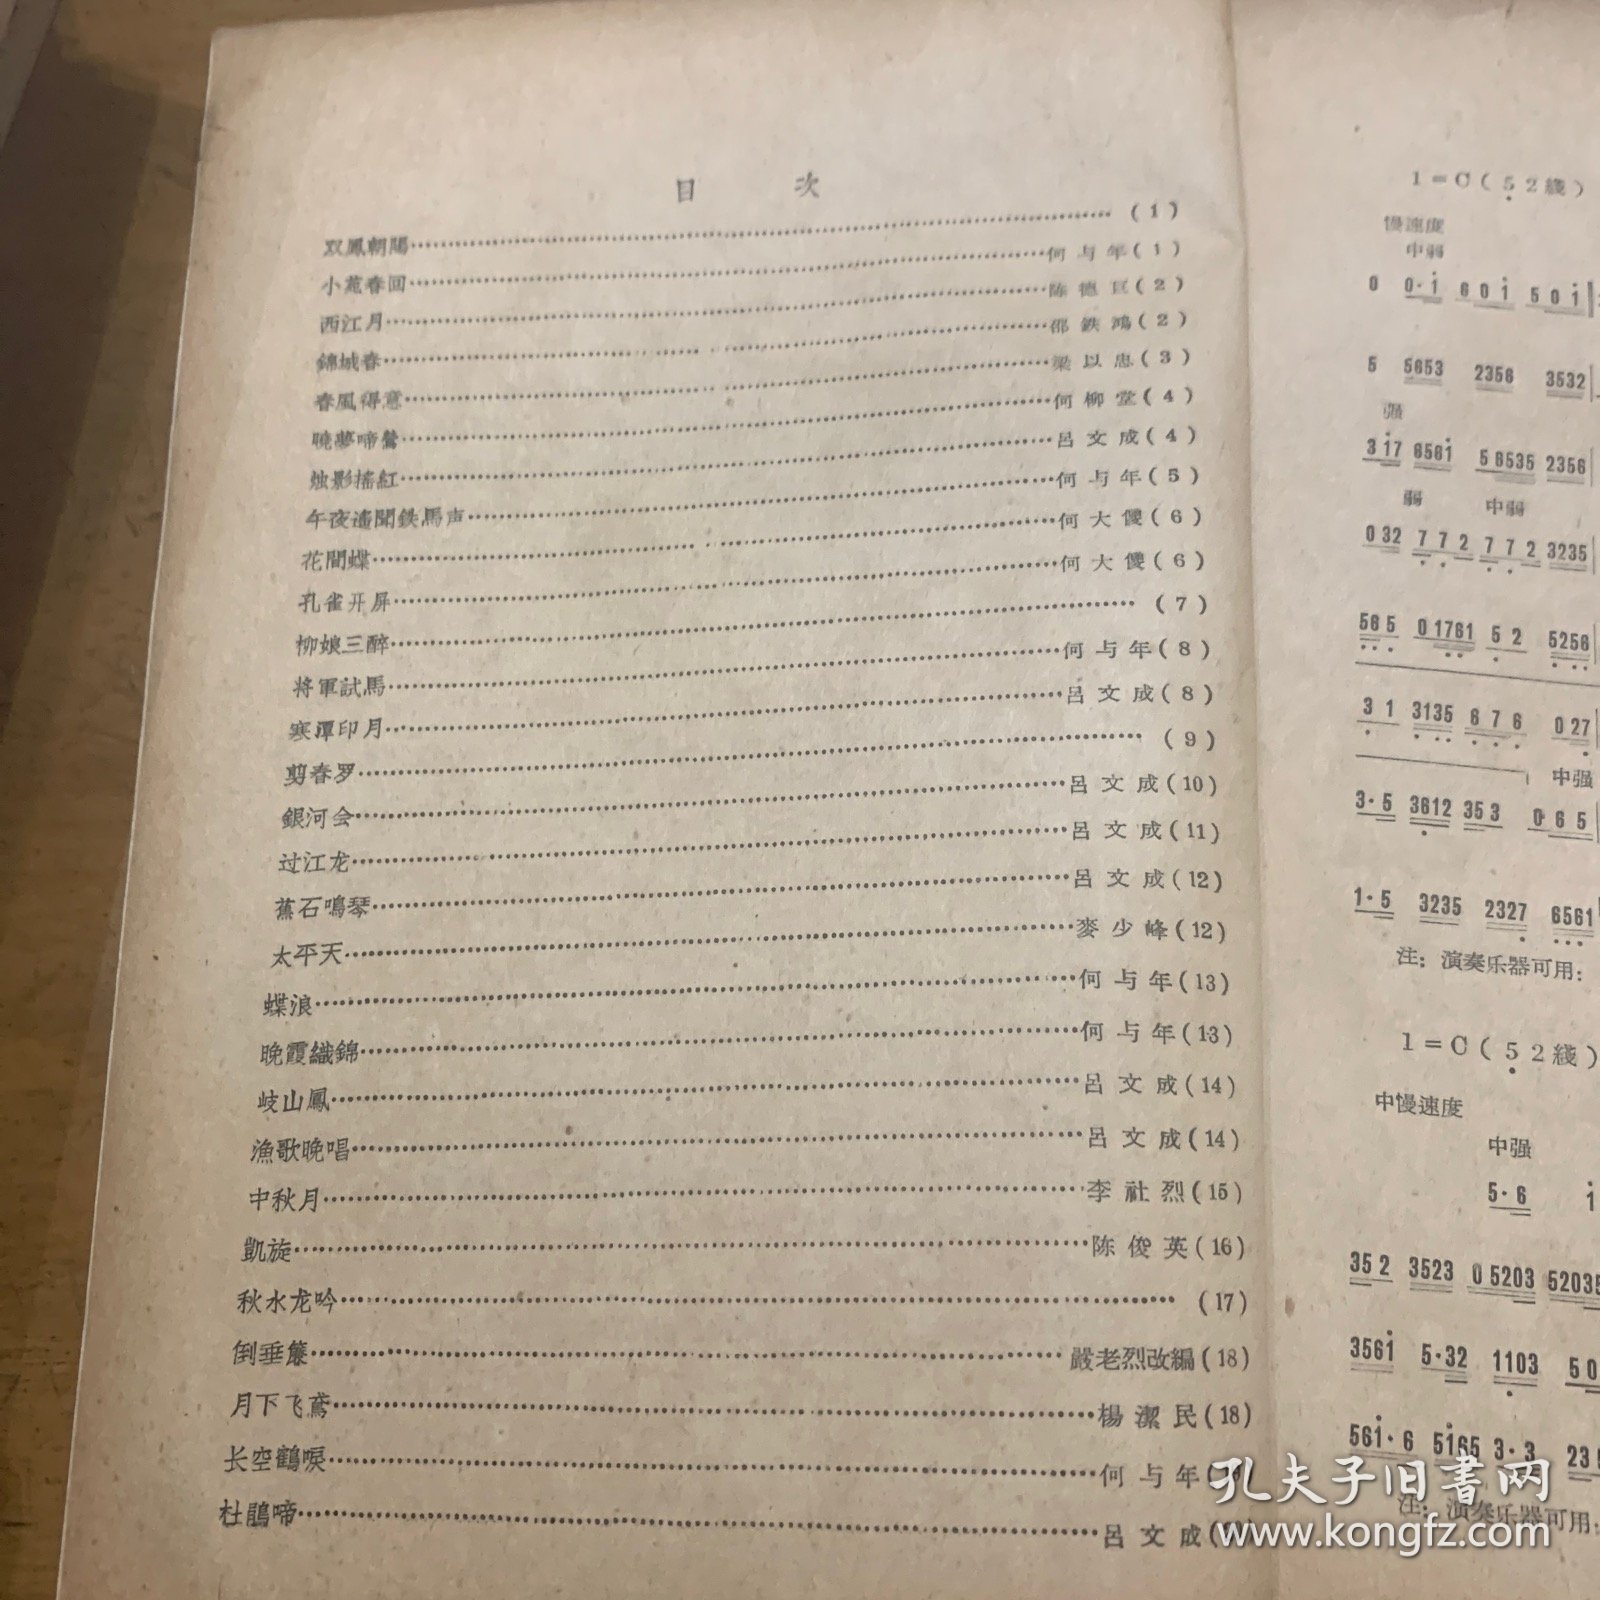 目 次
双鳳朝陽……(1)
小苑春回……何与年(1)
西江月……陈德巨(2)
錦城春……邵鉄鴻(2)
春風得意……梁以忠(3)
曉夢啼鶯……何柳堂(4)
烛影搖紅……呂文成(4)
午夜遙聞鉄馬声……何与年(5)
花間蝶……何大傻(6)
孔雀开屏……何大傻(6)
柳娘三醉……(7)
将軍試馬……何与年(8)
寒潭印月……呂文成(8)
剪春罗……(9)
銀河会……呂文成(10)
过江龙……呂文成(11)
蕉石鳴琴……呂文成(12)
太平天……麥少峰(12)
蝶浪……何与年(13)
晚霞織錦……何与年(13)
岐山鳳……呂文成(14)
漁歌晚唱……呂文成(14)
中秋月……李社烈(15)
凱旋……陈俊英(16)
秋水龙吟……(17)
倒垂簾……嚴老烈改編(18)
月下飞鳶……楊潔民(18)
长空鶴唳……何与年
杜鵑啼……呂文成
1=C(52綫)
慢速度
中弱
0 0·1 601 501
5 5653 2356 3532
强
317 6561 56535 2356
弱 中弱
032 772 772 3235
565 01761 52 5256
31 3135 676 027
中强
3·5 3612 353 065
1·5 3235 2327 6561
注：演奏乐器可用：
1=C(52綫)
中慢速度
中强
5·6 1
352 3523 05203 52035
3561 5·32 1103 50
561·6 5165 3·3 23
注：演奏乐器可用：
孔夫子旧书网
www.kongfz.com